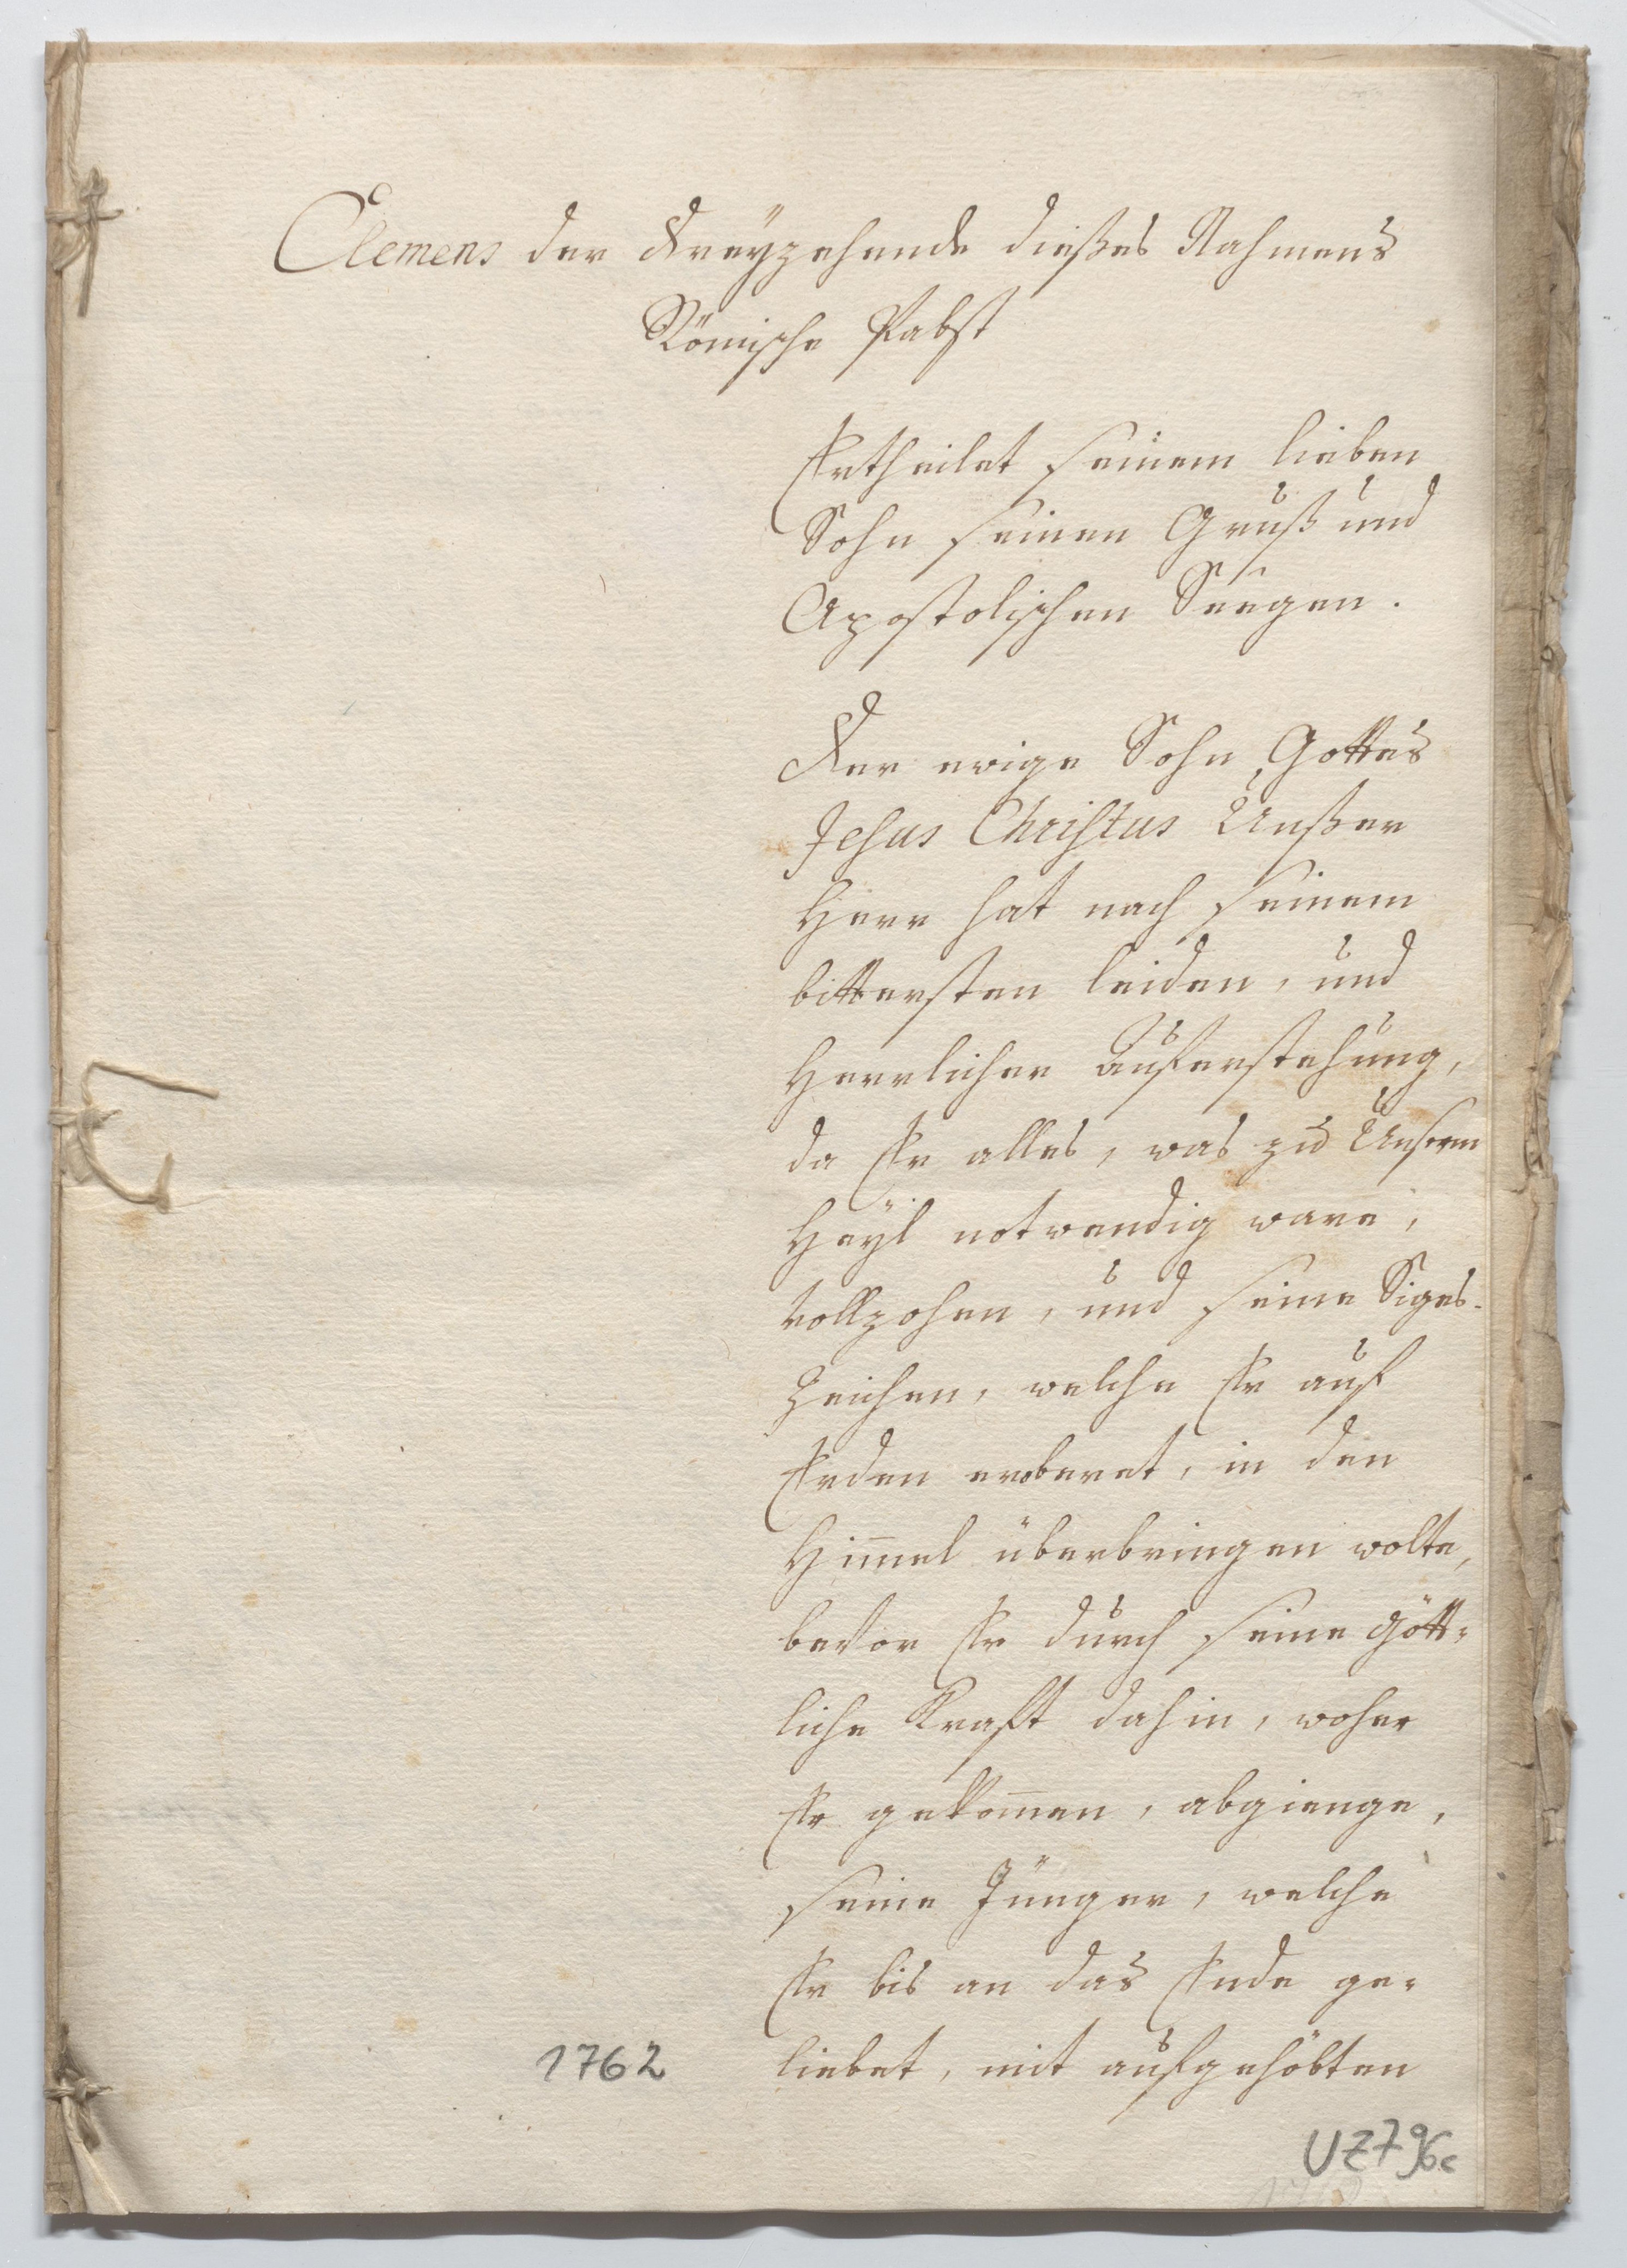 Clemens der Dreyzehende dießes Nahmens
Römische Pabst
Ertheilet seinem lieben
Sohn seinen Gruß und
Apostolischen Seegen.
Der ewige Sohn Gottes
Jesus Christus Unßer
Herr hat nach seinem
bittersten leiden, und
Herrlicher Auferstehung,
da Er alles, was zu Unserm
Heyl notwendig ware,
vollzohen, und seine Siges-
Zeichen, welche Er auf
Erden eroberet, in den
Him̄el überbringen wolte,
bevor Er durch seine gött-
liche Kraft dahin, woher
Er gekom̄en, abgienge,
seine Jünger, welche
Er bis an das Ende ge-
liebet, mit aufgehöbten
1762
UZ796c